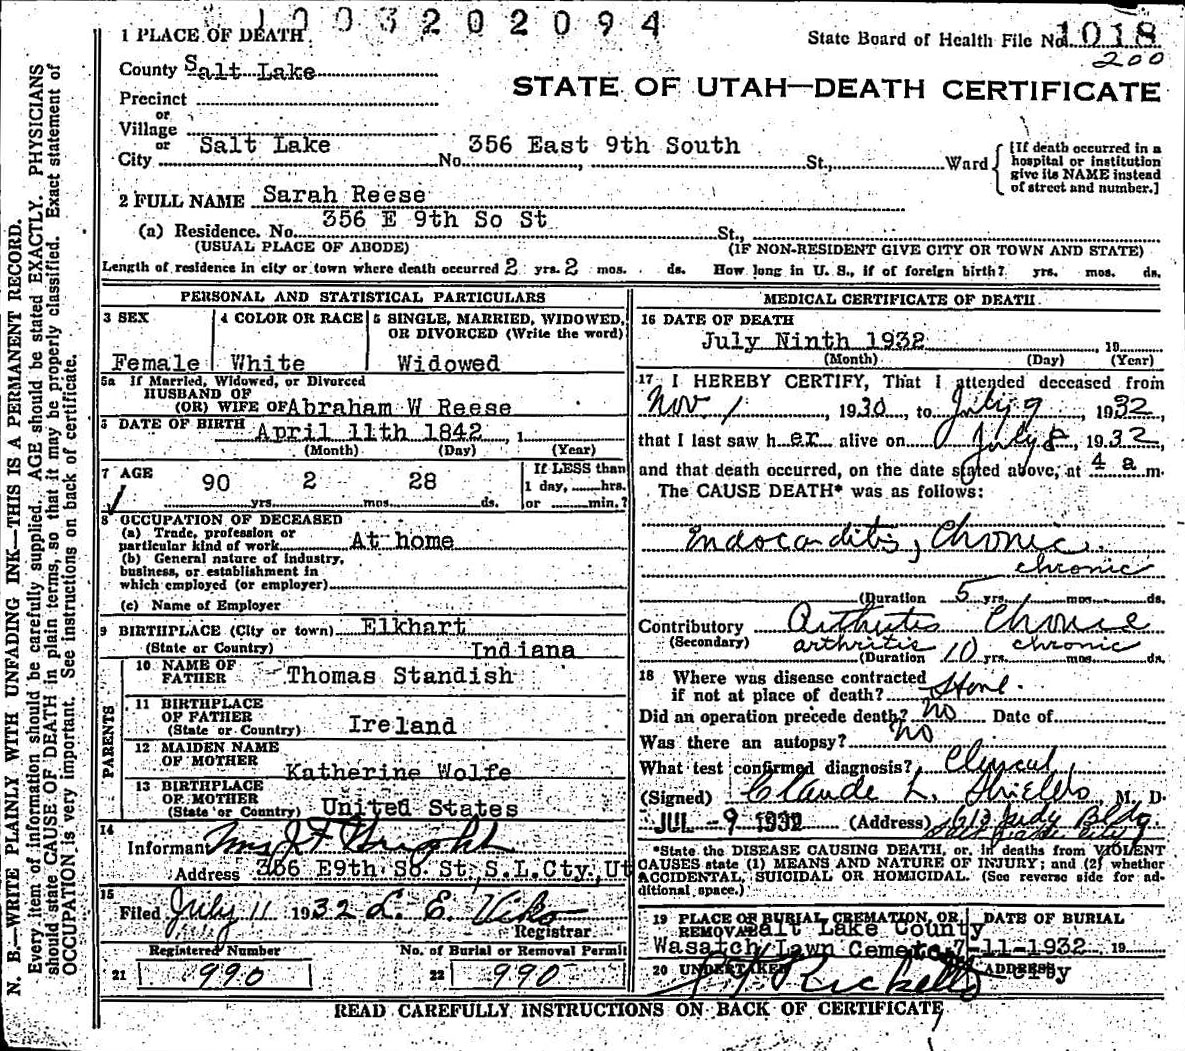 1003202094
1 PLACE OF DEATH
State Board of Health File No. 1018
200
County Salt Lake
STATE OF UTAH—DEATH CERTIFICATE
Precinct
or
Village
or
City Salt Lake No. 356 East 9th South St., Ward
[If death occurred in a
hospital or institution
give its NAME instead
of street and number.]
2 FULL NAME Sarah Reese
(a) Residence. No. 356 E 9th So St St.,
(USUAL PLACE OF ABODE) (IF NON-RESIDENT GIVE CITY OR TOWN AND STATE)
Length of residence in city or town where death occurred 2 yrs. 2 mos. ds. How long in U. S., if of foreign birth? yrs. mos. ds.
PERSONAL AND STATISTICAL PARTICULARS
3 SEX
Female
4 COLOR OR RACE
White
5 SINGLE, MARRIED, WIDOWED,
OR DIVORCED (Write the word)
Widowed
5a If Married, Widowed, or Divorced
HUSBAND OF
(OR) WIFE OF Abraham W Reese
6 DATE OF BIRTH April 11th 1842, 1
(Month) (Day) (Year)
7 AGE
90 yrs. 2 mos. 28 ds.
If LESS than
1 day, hrs.
or min.?
8 OCCUPATION OF DECEASED
(a) Trade, profession or
particular kind of work At home
(b) General nature of industry,
business, or establishment in
which employed (or employer)
(c) Name of Employer
9 BIRTHPLACE (City or town) Elkhart
(State or Country) Indiana
PARENTS
10 NAME OF
FATHER Thomas Standish
11 BIRTHPLACE
OF FATHER
(State or Country) Ireland
12 MAIDEN NAME
OF MOTHER
Katherine Wolfe
13 BIRTHPLACE
OF MOTHER
(State or Country) United States
14
Informant Mrs J F Wright
Address 356 E9th So. St, S.L.Cty, Ut
15
Filed July 11 1932 L. E. Viko
Registrar
Registered Number
21 990
No. of Burial or Removal Permit
22 990
MEDICAL CERTIFICATE OF DEATH
16 DATE OF DEATH
July Ninth 1932 19
(Month) (Day) (Year)
17 I HEREBY CERTIFY, That I attended deceased from
Nov. 1, 1930, to July 9, 1932,
that I last saw her alive on July 8, 1932
and that death occurred, on the date stated above, at 4 a m.
The CAUSE DEATH* was as follows:
Endocarditis, Chronic.
chronic
(Duration 5 yrs. mos. ds.
Contributory Arthritis Chronic
(Secondary) arthritis chronic
(Duration 10 yrs. mos. ds.
18 Where was disease contracted
if not at place of death? Home.
Did an operation precede death? No Date of
Was there an autopsy? No
What test confirmed diagnosis? Clinical
(Signed) Claude L. Shields, M. D.
JUL -9 1932 (Address) 613 Judge Bldg.
*State the DISEASE CAUSING DEATH, or, in deaths from VIOLENT
CAUSES state (1) MEANS AND NATURE OF INJURY; and (2) whether
ACCIDENTAL, SUICIDAL OR HOMICIDAL. (See reverse side for ad-
ditional space.)
19 PLACE OF BURIAL, CREMATION, OR
REMOVAL Salt Lake County
Wasatch Lawn Cemete
DATE OF BURIAL
7-11-1932 19
20 UNDERTAKER
Ricketts
ADDRESS
City
READ CAREFULLY INSTRUCTIONS ON BACK OF CERTIFICATE
N. B.—WRITE PLAINLY WITH UNFADING INK—THIS IS A PERMANENT RECORD.
Every item of information should be carefully supplied. AGE should be stated EXACTLY. PHYSICIANS
should state CAUSE OF DEATH in plain terms, so that it may be properly classified. Exact statement of
OCCUPATION is very important. See instructions on back of certificate.